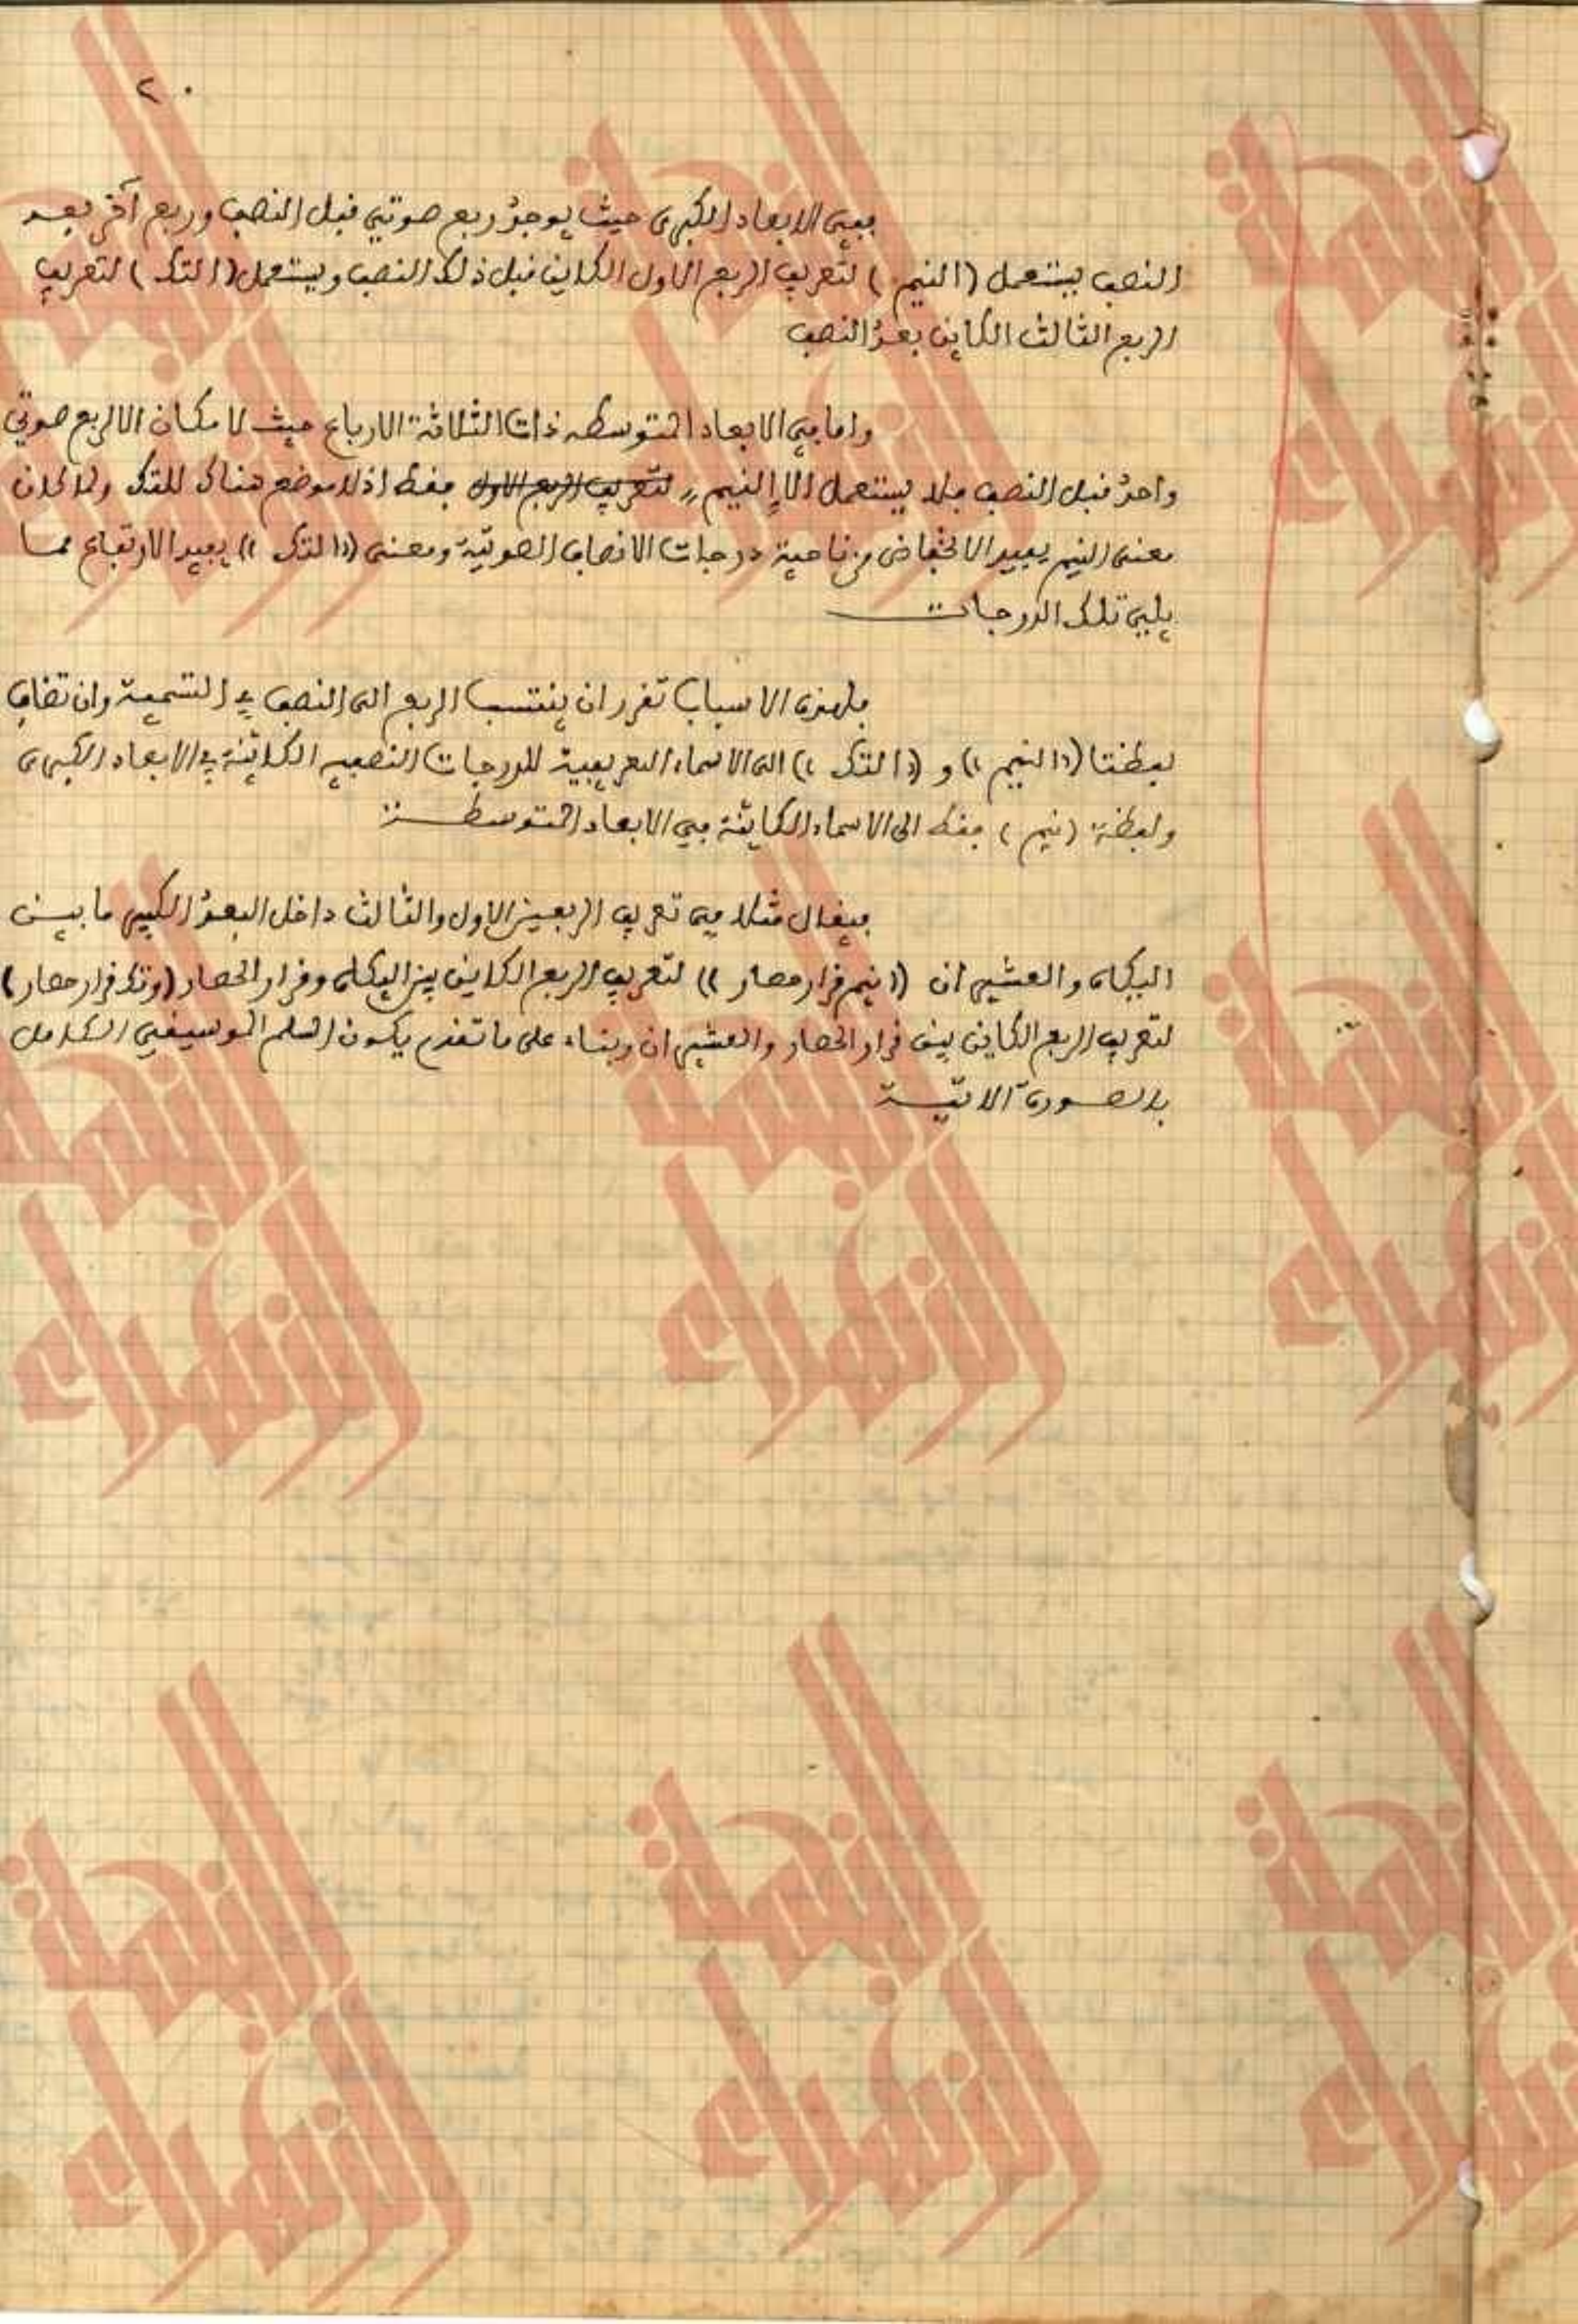 ٢٠
ففي الابعاد الكبرى حيث يوجد ربع صوتي قبل النصف وربع آخر بعد
النصف يستعمل (النيم) لتعريف الربع الاول الكاين قبل ذلك النصف ويستعمل (التك) لتعريف
الربع الثالث الكاين بعد النصف
واما في الابعاد المتوسطه ذات الثلاثة الارباع حيث لا مكان الا لربع صوتي
واحد قبل النصف فلا يستعمل الا النيم لتعريف الربع الاول فقط اذ لا موضع هناك للتك ولما كان
معنى النيم يفيد الانخفاض من ناحية درجات الانصاف الصوتية ومعنى ((التك)) يفيد الارتفاع مما
يلي تلك الدرجات
فلهذه الاسباب تقرر ان ينتسب الربع الى النصف في التسمية وان تضاف
لفظتا ((النيم)) و ((التك)) الى الاسماء التعريفية للدرجات النصفيه الكائنة في الابعاد الكبرى
ولفظة (نيم) فقط الى الاسماء الكاينة في الابعاد المتوسطة
فيقال مثلا في تعريف الربعين الاول والثالث داخل البعد الكبير ما بين
اليكاه والعشيران ((نيم قرار حصار)) لتعريف الربع الكاين بين اليكاه وقرار الحصار (وتك قرار حصار)
لتعريف الربع الكاين بين قرار الحصار والعشيران وبناء على ما تقدم يكون السلم الموسيقي الكامل
بالصورة الاتية
النجمة الزهراء